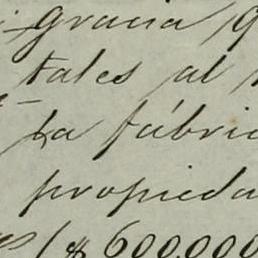 gracia
tales al
La fábric
propieda
($600,000